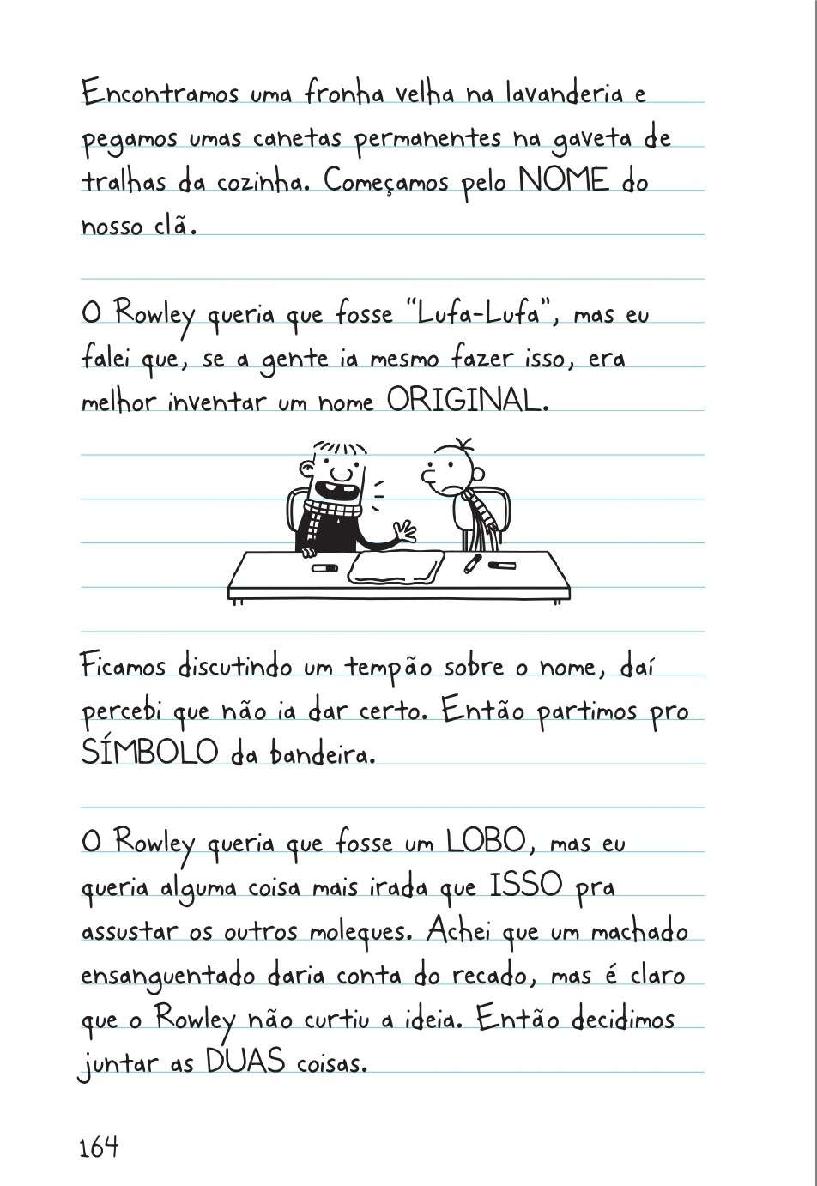 Encontramos uma fronha velha na lavanderia e
pegamos umas canetas permanentes na gaveta de
tralhas da cozinha. Começamos pelo NOME do
nosso clã.
O Rowley queria que fosse “Lufa-Lufa”, mas eu
falei que, se a gente ia mesmo fazer isso, era
melhor inventar um nome ORIGINAL.
Ficamos discutindo um tempão sobre o nome, daí
percebi que não ia dar certo. Então partimos pro
SÍMBOLO da bandeira.
O Rowley queria que fosse um LOBO, mas eu
queria alguma coisa mais irada que ISSO pra
assustar os outros moleques. Achei que um machado
ensanguentado daria conta do recado, mas é claro
que o Rowley não curtiu a ideia. Então decidimos
juntar as DUAS coisas.
164